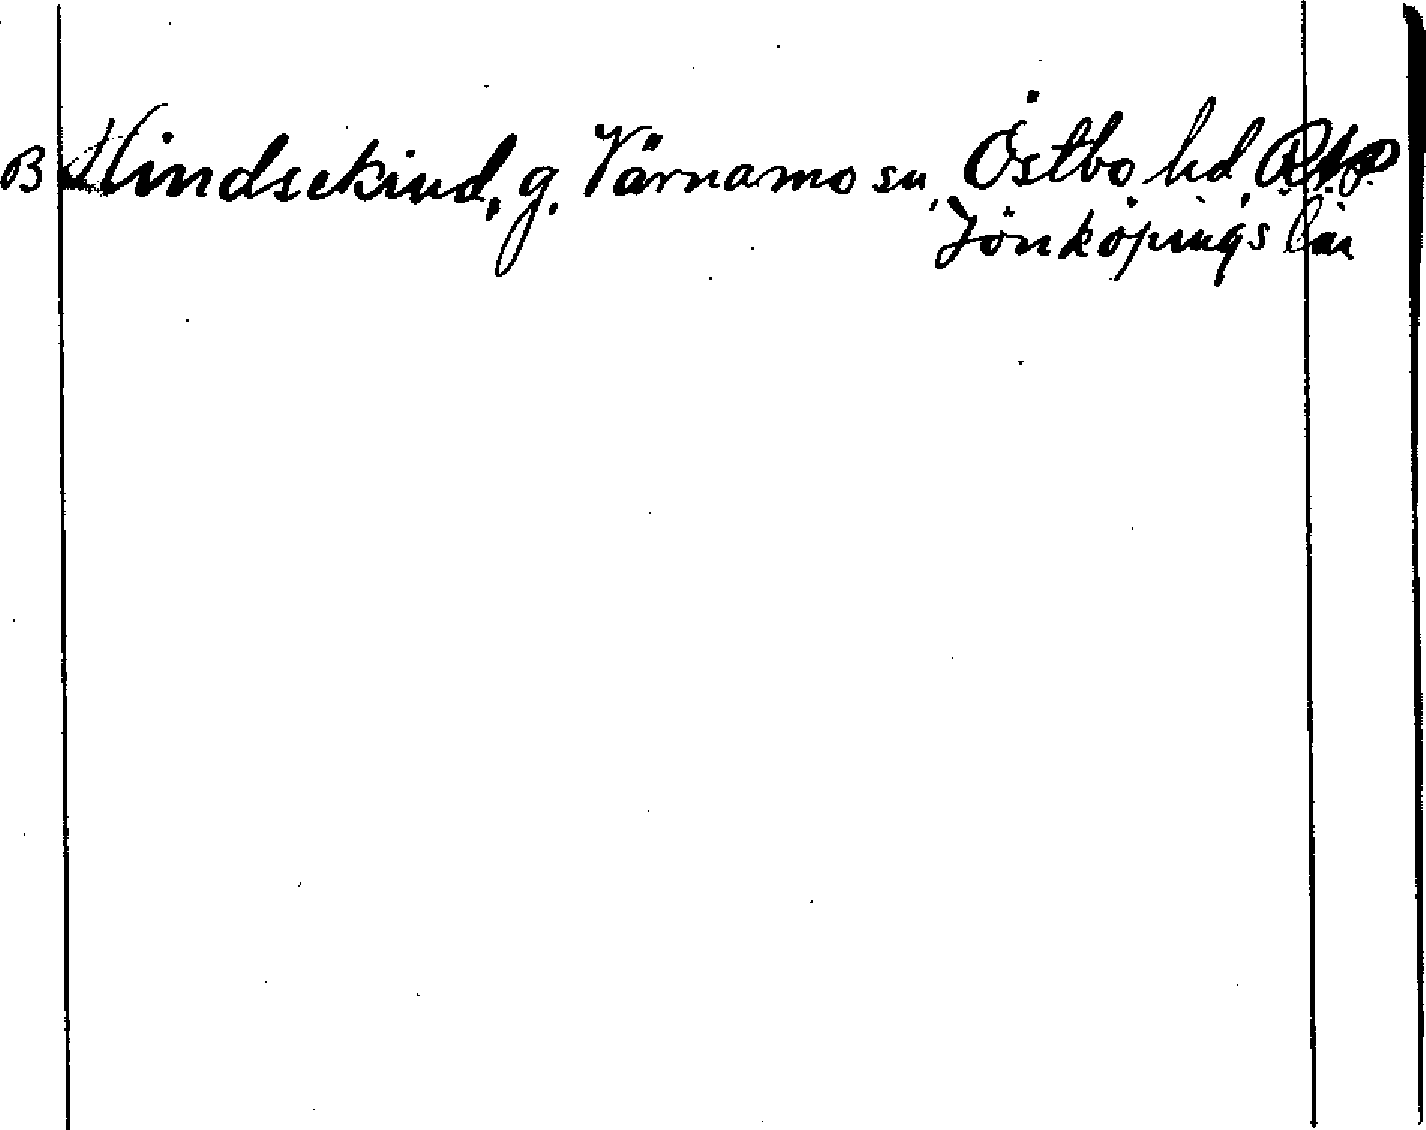 B Hindsekind, g. Värnamo sn, Östbo hd,
Jönköpings län